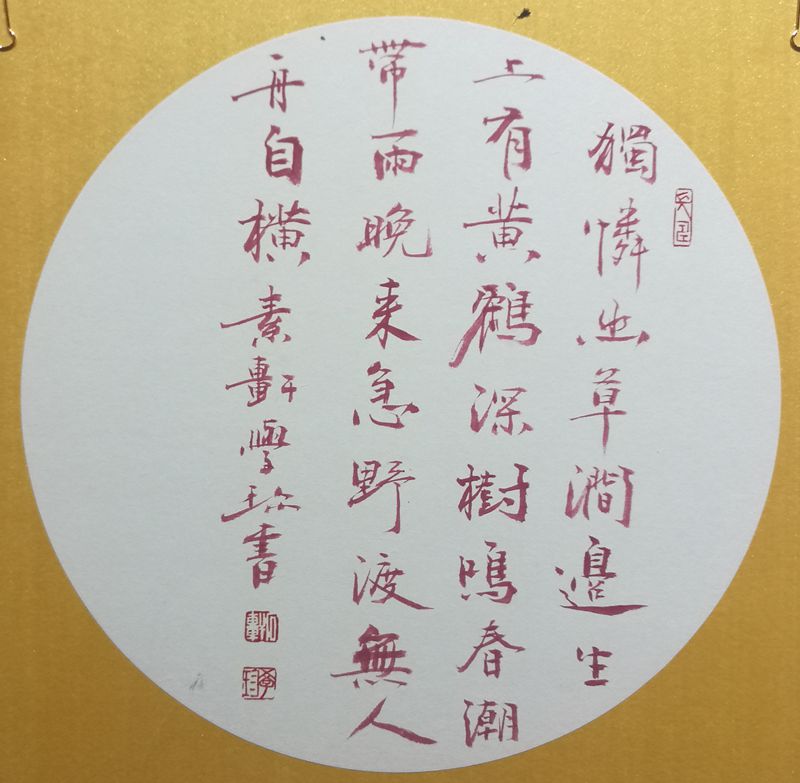 獨憐幽草澗邊生
上有黄鶴深樹鳴春潮
帶雨晚来急野渡無人
舟自横素軒學珍書